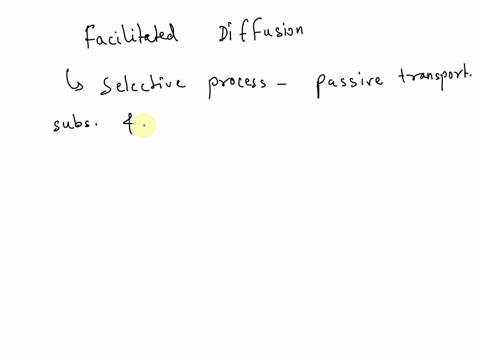 Facilitated Diffusion
↳ Selective process - passive transport.
subs.